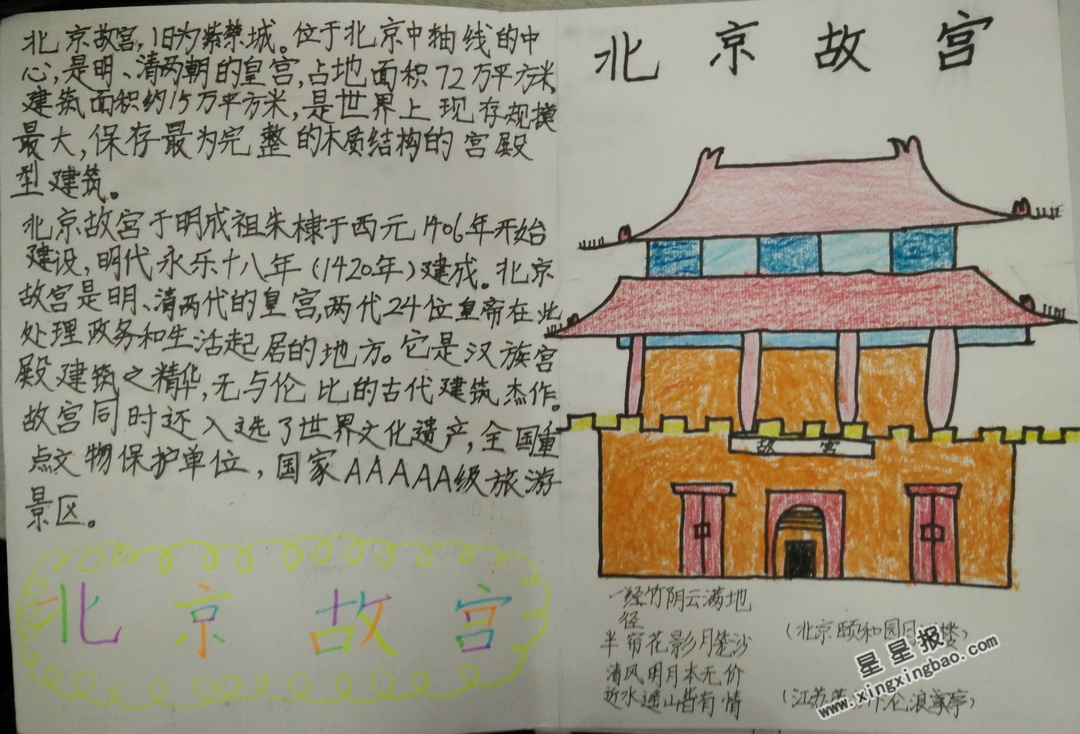 北京故宫，旧为紫禁城。位于北京中轴线的中
心，是明、清两朝的皇宫，占地面积72万平方米，
建筑面积约15万平方米，是世界上现存规模
最大，保存最为完整的木质结构的宫殿
型建筑。
北京故宫于明成祖朱棣于西元1406年开始
建设，明代永乐十八年（1420年）建成。北京
故宫是明、清两代的皇宫，两代24位皇帝在此
处理政务和生活起居的地方。它是汉族宫
殿建筑之精华，无与伦比的古代建筑杰作。
故宫同时还入选了世界文化遗产，全国重
点文物保护单位，国家AAAAA级旅游
景区。
北京故宫
北京故宫
故宫
中
中
一经竹阴云满地
径
半帘花影月笼沙
（北京颐和园月 楼）
清风明月本无价
近水遥山皆有情
（江苏 沧浪亭）
星星报
www.xingxingbao.com